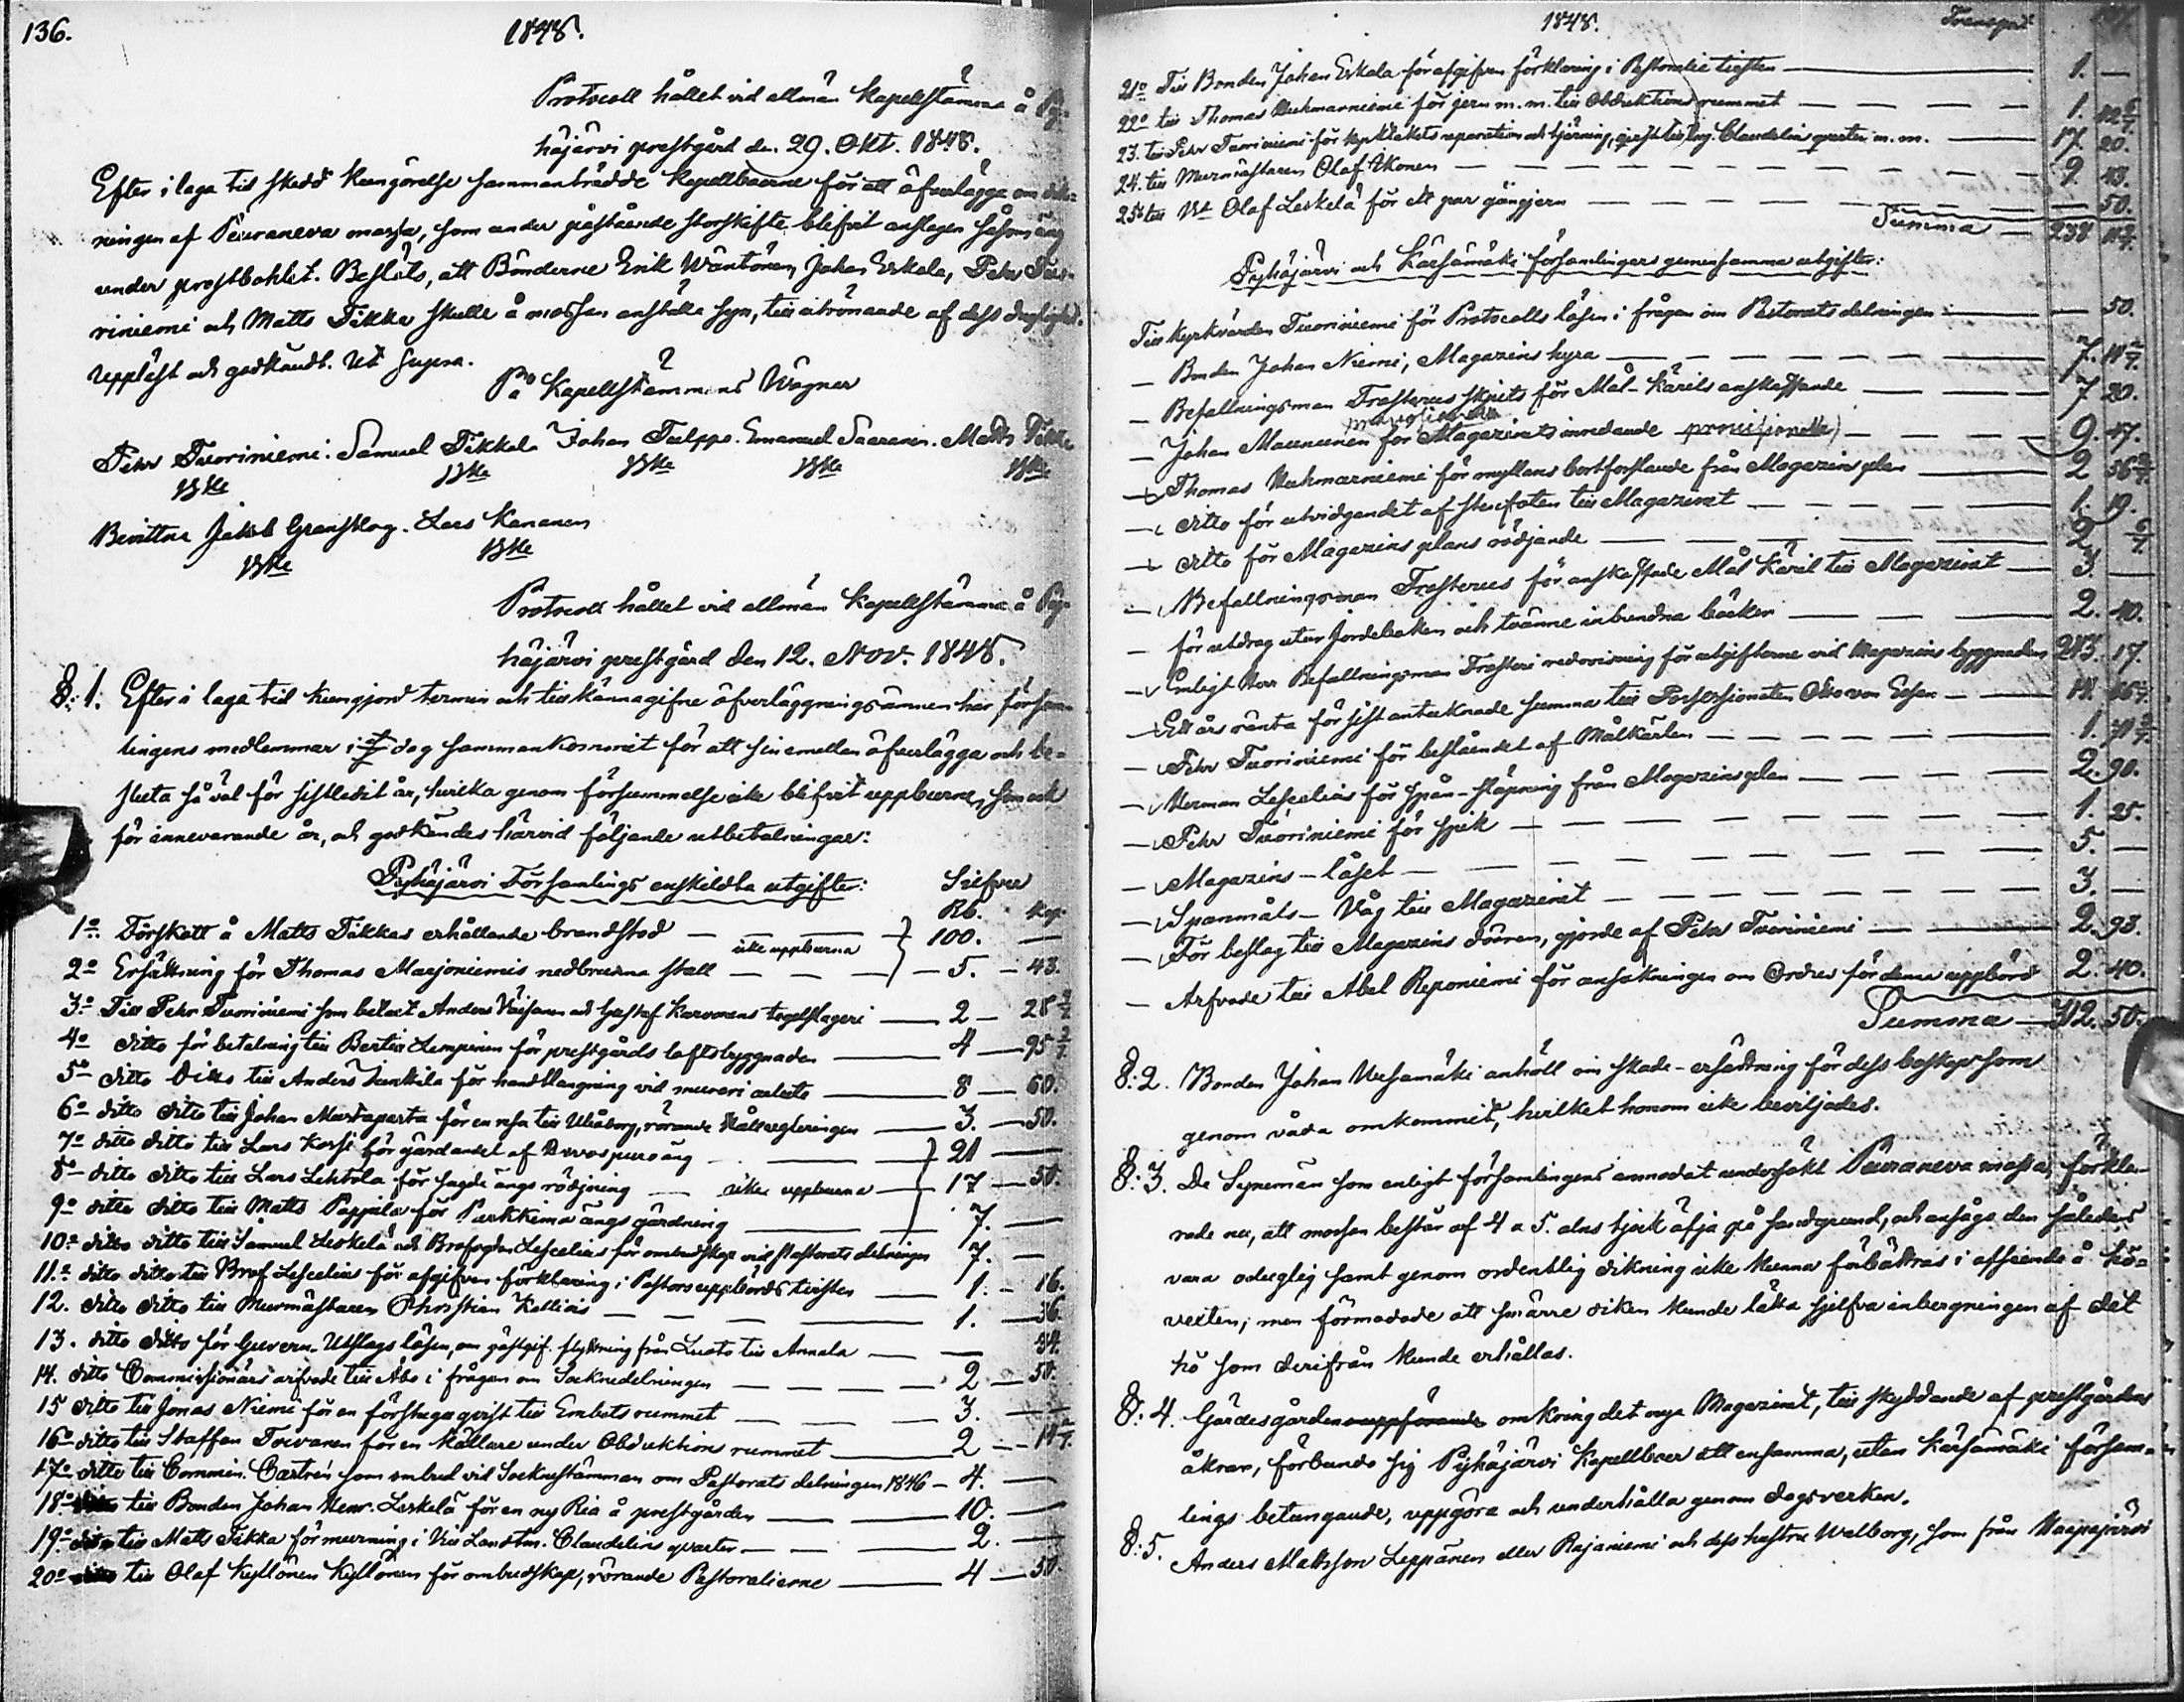 136.
1848.
Protocoll hållet vid allmän Kapellstämma å Py-
häjärvi prestgård den 29. Okt. 1848.
Efter i laga tid skedd kungörelse sammanträdde Kapellboerne för att öfverlägga om dik-
ningen af Peuraneva mossa, som under påstående storskifte blifvit anslagen såsom äng
under prestbohlet. Beslöts, att Bönderne Erik Wäntönen, Johan Eskola, Pehr Tuo-
riniemi och Matts Tikka skulle å mossan anställa syn, till utrönande af dess duglighet.
Uppläst och godkändt. Ut supra.
På Kapellstämmans Wägnar
Pehr Tuoriniemi. Samuel Tikkala Johan Tulppo. Emanuel Saaranen. Matts Tikka
Bevittna Jakob Granskog. Lars Kananen
Protocoll hållet vid allmän Kapellstämma å Py-
häjärvi prestgård den 12. Nov. 1848.
§: 1. Efter i laga tid kungjord termin och tillkännagifne öfverläggningsämnen har försam-
lingens medlemmar i dag sammankommit för att sinemellan öfverlägga och be-
sluta så väl för sistledit år, hvilka genom försummelse icke blifvit uppburne, som ock
för innevarande år, och godkändes härvid följande utbetalningar:
Pyhäjärvi Församlings enskildta utgifter: Silfver
Rb. Kop.
1o Förskott å Matts Tikkas erhållande brandstod — 100. —
icke uppburna
2o Ersättning för Thomas Marjoniemis nedbrunna stall — 5. — 43.
3o Till Pehr Tuoriniemi som betalt Anders Väisänen och Gustaf Karvonens tegelslageri — 2 — 28 4/7
4o ditto för betalning till Bertil Lempinen för prestgårds loftsbyggnaden — 4 — 95 5/7
5o ditto ditto till Anders Junttila för handtlangning vid mureri arbete — 8 — 60.
6o ditto ditto till Johan Mustaparta för en resa till Uleåborg, rörande — 3. — 50.
7o ditto ditto till Lars Korpi för gärdandet af Arvospuro äng — 21 —
8o ditto ditto till Lars Lehtola för sagde ängs rödjning — icke uppburna — 17 — 50.
9o ditto ditto till Matts Pappila för Purkkima ängs gärdning — 7. —
10o ditto ditto till Samuel Leskelä och Brofogden Lescelius för ombudskap vid Pastorats delningen 7. —
11.o ditto ditto till Brof Lescelius för afgifven förklaring i Pastors uppbörds tvisten — 1. — 16.
12. ditto ditto till Murmästaren Christian Kallinis — 1. — 36.
13. ditto ditto för Guvern. Utslags lösen, om gästgif. flyttning från Luoto till Annala — 94.
14. ditto Commissionärs arfvode till Åbo i frågan om Socknedelningen — 2 — 50.
15 ditto till Jonas Niemi för en förstuguqvist till Embetsrummet — 3. —
16o ditto till Staffan Toivanen för en Källare under Obduktions rummet — 2 — 14 2/7.
17o ditto till Commin. Castrén som ombud vid Socknestämman om Pastorats delningen 1846 — 4. —
18o till Bonden Johan Henr. Leskelä för en ny Ria å prestgården — 10. —
19o till Matts Tikka för murning i Vice Landtm. Claudelins qvarter — 2. —
20o till Olaf Kyllönen Kyllönen för ombudskap, rörande Pastoralierne — 4 — 50.
1848. Transport
21o Till Bonden Johan Eskola för afgifven förklaring i Pastoralie tvisten — 1. —
22o till Thomas Ruhmarniemi för jern m. m. till Obduktions rummet — 1. 42 6/7.
23. till Pehr Tuoriniemi för kyrktakets reparation och tjärning, Claudelins qvarter m. m. — 17. 20.
24. till Murmästaren Olaf Ikonen — 9. 43.
25. till Bd. Olaf Leskelä för ett par gångjern — 50.
Summa — 238 11 3/7.
Pyhäjärvi och Kärsämäki församlingars gemensamma utgifter:
Till Kyrkvärden Tuoriniemi för Protocolls lösen i frågan om Pastorats delningen — 50.
— Bonden Johan Niemi, Magazins hyra — 7. 14 2/7.
— Befallningsman Frosterus skjuts för Mål-Kärils anskaffande — 7 20.
provisionella
— Johan Maununen för Magazinets inredande provisionellt) — 9. 47.
— Thomas Ruhmarniemi för myllans bortforslande från Magazins plan — 2 56 5/7.
— ditto för utvidgandet af stenfoten till Magazinet — 1. 19.
— ditto för Magazins plans rödjande — 2 6/7
— Befallningsman Frosterus för anskaffade Mål Käril till Magazinet — 3. —
— för utdrag utur Jordeboken och tvänne inbundna böcker — 2. 40.
— Enligt Herr Befallningsman Frosteri redovisning för utgifterne vid Magazins byggnaden 243. 17.
— Ett års ränta för sist antecknade summa till Possessionaten Otto von Essen — 14.
— Pehr Tuoriniemi för beslåendet af Målkärlen — 1. 71 3/7.
— Herman Lescelius för spån-släpning från Magazinsplan — 2. 90.
— Pehr Tuoriniemi för spik — 1. 25.
— Magazins-låset — 5. —
— Spanmåls-Våg till Magazinet — 3. —
— För beslag till Magazins dörren, gjorde af Pehr Tuoriniemi — 2. 93.
— Arfvode till Abel Reponiemi för ansökningen om Ordres för denne uppbörd 2. 40.
Summa — 312. 50.
§: 2. Bonden Johan Vesamäki anhöll om skade-ersättning för dess boskap som
genom våda omkommit, hvilket honom icke beviljades.
§: 3. De Synemän som enligt församlingens anmodat undersökt Peuraneva mossa, förkla-
rade nu, att mossan består af 4 a 5. alns tjock äfja på sandgrund, och ansågo den således
vara oduglig samt genom ordentlig dikning icke kunna förbättras i afseende å hö-
vexten; men förmodade att smärre diken kunde lätta sjelfva inbergningen af det
hö som derifrån kunde erhållas.
§: 4. Gärdesgården uppförande omkring det nya Magazinet, till skyddande af prestgårdens
åkrar, förbundo sig Pyhäjärvi Kapellboer att ensamma, utan Kärsämäki försam-
lings betungande, uppgöra och underhålla genom dagsverken.
§: 5. Anders Mattsson Leppänen eller Rajaniemi och dess hustru Walborg, som från Haapajärvi